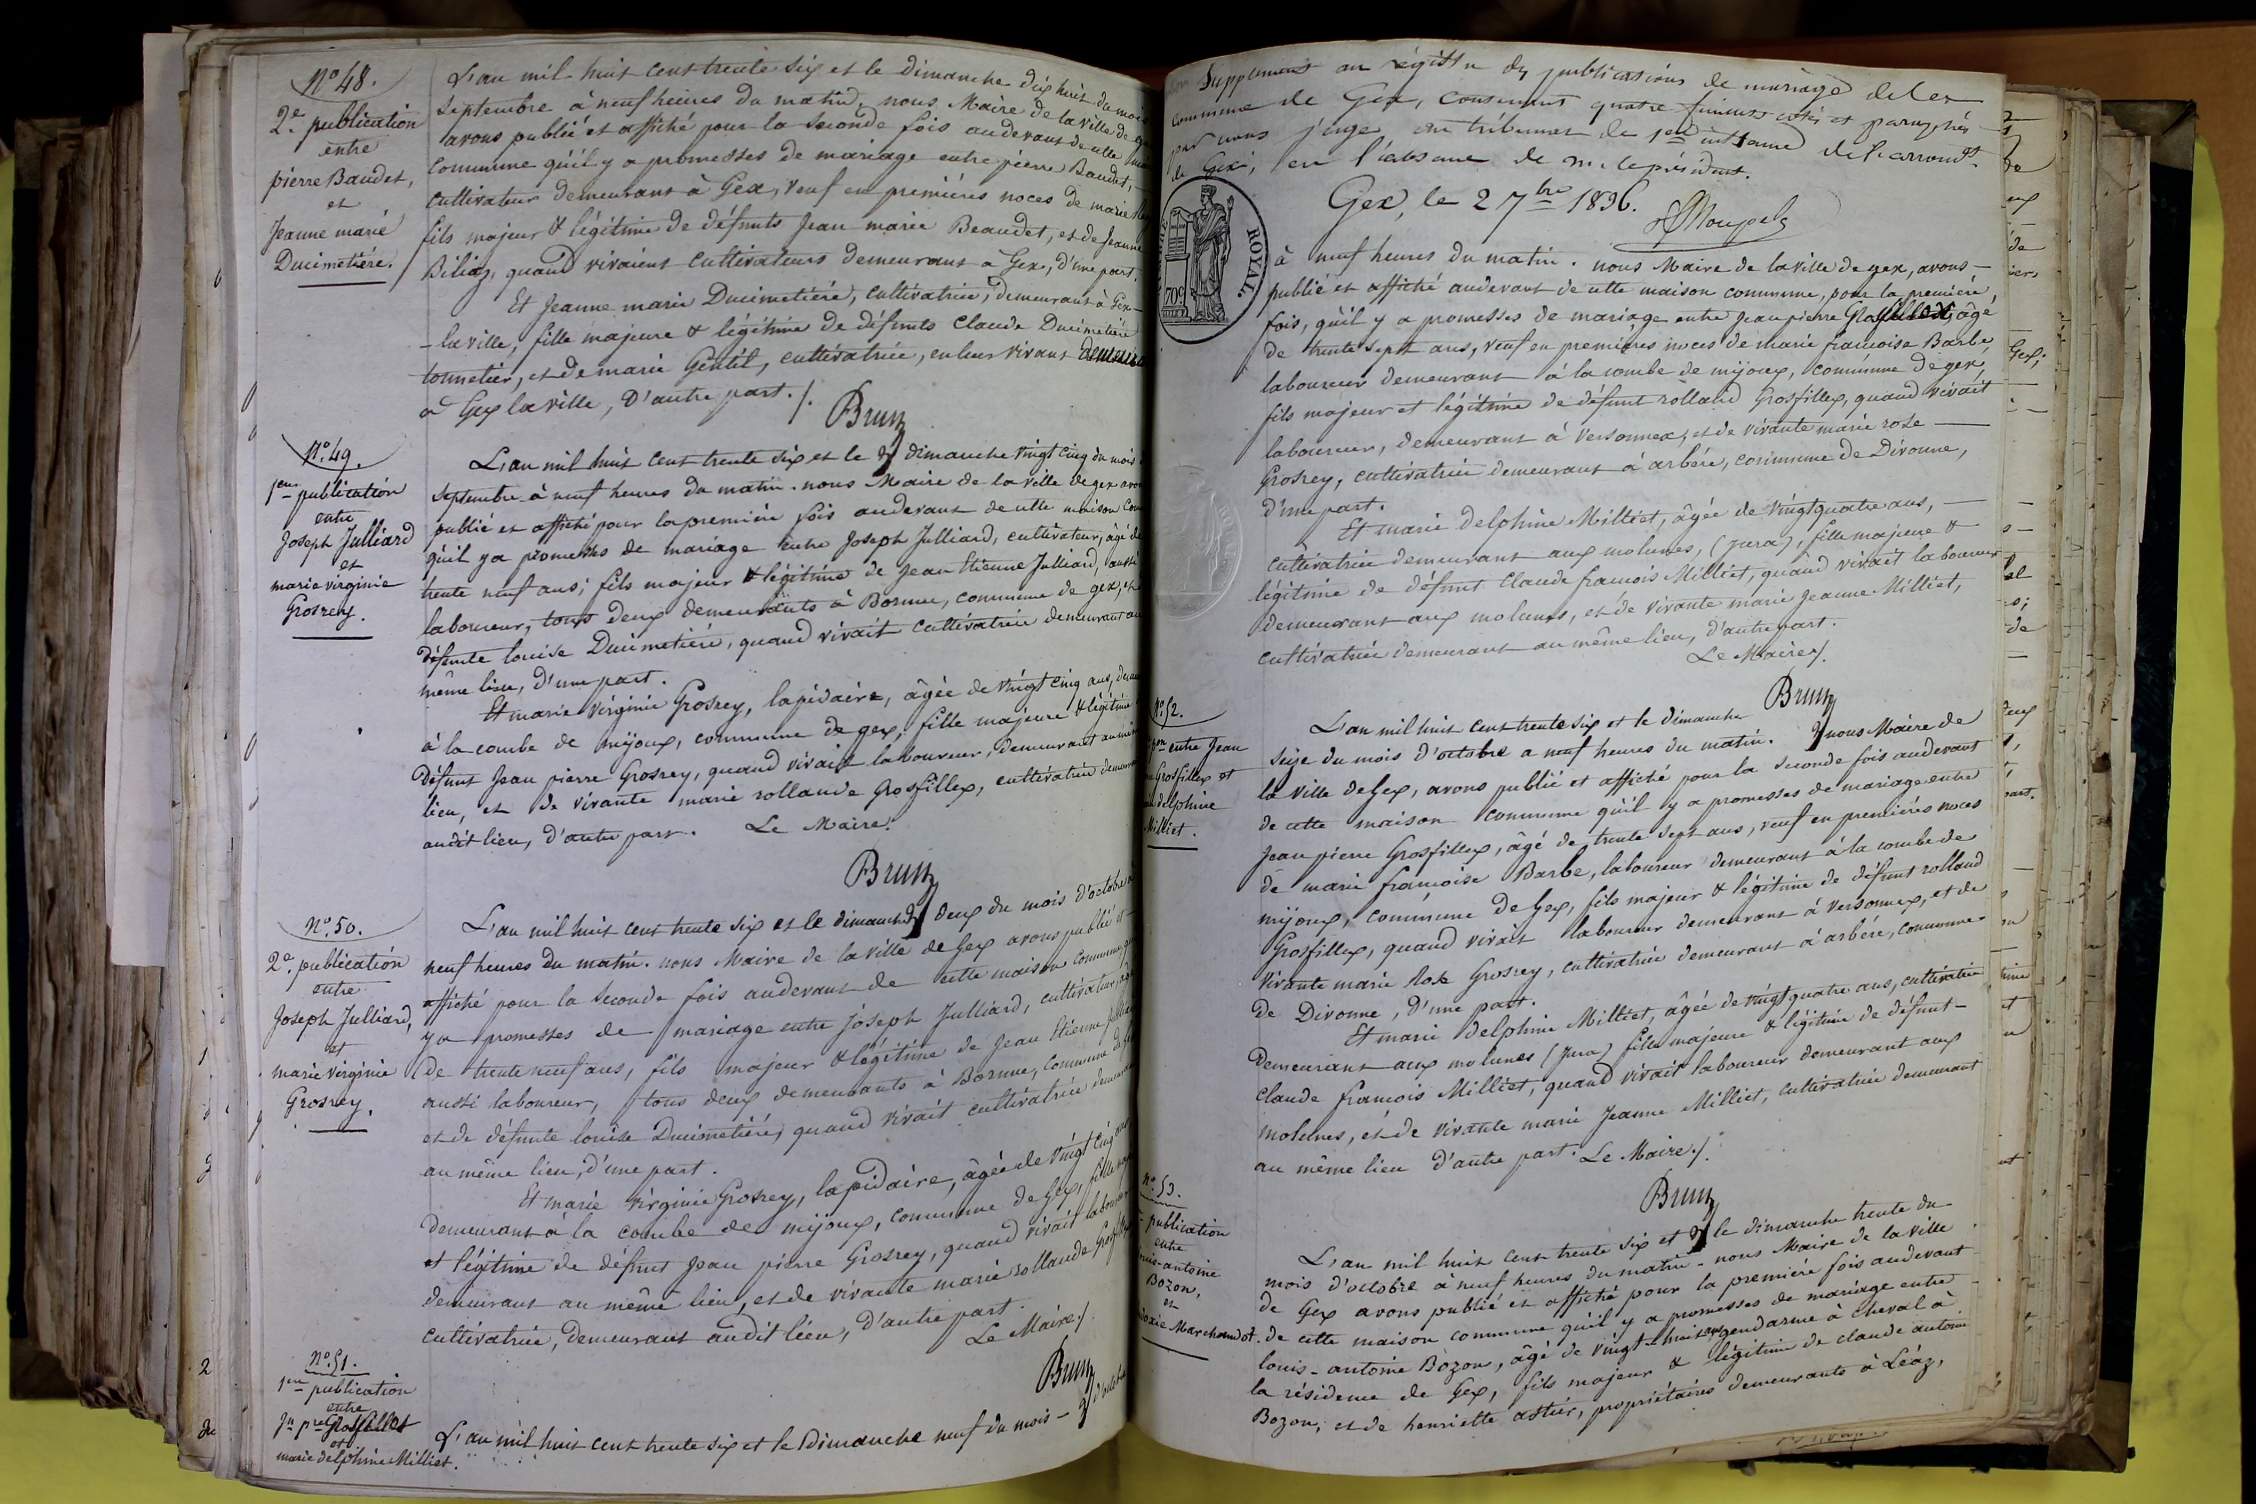 N° 48.
2e. publication
entre
pierre Baudet,
et
Jeanne marie
Ducimetière.
L'an mil huit cent trente six et le dimanche dix huit du mois
septembre à neuf heures du matin, nous Maire de la ville de
avons publié et affiché pour la seconde fois audevant de cette
commune qu'il y a promesses de mariage entre pierre Baudet,
cultivateur demeurant à Gex, veuf en premières noces de marie
fils majeur & légitime de défunts Jean marie Beaudet, et de Jeanne
quand vivaient cultivateurs demeurant à Gex, d'une part.
Et Jeanne marie Ducimetière, cultivatrice, demeurant à Gex-
-la ville, fille majeure & légitime de défunts Claude Ducimetière
tonnelier, et de marie Gentil, cultivatrice, en leur vivant
à Gex la ville, d'autre part./.
Brun
N° 49.
1ere publication
entre
Joseph Julliard
et
marie virginie
Grosrey.
L'an mil huit cent trente six et le dimanche vingt cinq du mois
septembre à neuf heures du matin. nous Maire de la ville de gex
publié et affiché pour la première fois audevant de cette maison
qu'il y a promesses de mariage entre Joseph Julliard, cultivateur, âgé de
trente neuf ans, fils majeur & légitime de jean Etienne Julliard, aussi
laboureur, tous deux demeurants à Bornue, commune de gex,
défunte louise Ducimetière, quand vivait cultivatrice demeurant au
même lieu, d'une part.
Et marie virginie Grosrey, lapidaire, âgée de vingt cinq ans,
à la combe de mijoux, commune de gex, fille majeure & légitime
défunt Jean pierre Grosrey, quand vivait laboureur, demeurant au
lieu, et de vivante marie rollande Grosfillex, cultivatrice
audit lieu, d'autre part. Le Maire.
Brun
N° 50.
2e. publication
entre
Joseph Julliard,
et
marie virginie
Grosrey.
L'an mil huit cent trente six et le dimanche deux du mois d'octobre
neuf heures du matin. nous Maire de la ville de Gex avons publié et
affiché pour la seconde fois audevant de cette maison commune,
y a promesses de mariage entre joseph Julliard, cultivateur,
de trente neuf ans, fils majeur & légitime de jean Etienne
aussi laboureur, tous deux demeurants à Bornue, commune de
et de défunte louise Ducimetière, quand vivait cultivatrice
au même lieu, d'une part.
Et marie virginie Grosrey, lapidaire, âgée de vingt cinq ans
demeurant à la combe de mijoux, commune de Gex, fille
et légitime de défunt Jean pierre Grosrey, quand vivait laboureur
demeurant au même lieu, et de vivante marie rollande
cultivatrice, demeurant audit lieu, d'autre part.
Le Maire./.
Brun
N° 51.
1ere publication
entre
Jn pre Grosfillex
et
marie delphine Milliet.
L'an mil huit cent trente six et le dimanche neuf du mois - d'octobre
Supplement au régistre des publications de mariage de la
commune de Gex, contenant quatre feuillets cotés et paraphés
par nous juge au tribunal de 1ere instance de l'arrondt
de Gex, en l'absence de m. le président.
Gex, le 2 7bre 1836.
ROYAL.
70c
à neuf heures du matin. nous Maire de la ville de gex, avons
publié et affiché audevant de cette maison commune, pour la première
fois, qu'il y a promesses de mariage entre Jean pierre Grosfillex, âgé
de trente sept ans, veuf en premières noces de marie francoise Barbe
laboureur demeurant à la combe de mijoux, commune de gex,
fils majeur et légitime de défunt rolland Grosfillex, quand vivait
laboureur, demeurant à versonnex, et de vivante marie rose
Grosrey, cultivatrice demeurant à arbére, commune de Divonne,
d'une part.
Et marie delphine Milliet, âgée de vingt quatre ans,
cultivatrice demeurant aux molunes, (jura), fille majeure &
légitime de défunt Claude francois Milliet, quand vivait laboureur
demeurant aux molunes, et de vivante marie Jeanne Milliet,
cultivatrice demeurant au même lieu, d'autre part.
Le Maire./.
Brun
N° 52.
entre Jean
Grosfillex et
delphine
Milliet.
L'an mil huit cent trente six et le dimanche
seize du mois d'octobre a neuf heures du matin. nous Maire de
la ville de Gex, avons publié et affiché pour la seconde fois audevant
de cette maison commune qu'il y a promesses de mariage entre
Jean pierre Grosfillex, âgé de trente sept ans, veuf en premières noces
de marie françoise Barbe, laboureur demeurant à la combe de
mijoux, commune de Gex, fils majeur & légitime de défunt rolland
Grosfillex, quand vivait laboureur demeurant à versonnex, et de
vivante marie Rose Grosrey, cultivatrice demeurant à arbére, commune
de Divonne, d'une part.
Et marie delphine Milliet, âgée de vingt quatre ans, cultivatrice
demeurant aux molunes (jura) fille majeure & légitime de défunt
claude francois Milliet, quand vivait laboureur demeurant aux
molunes, et de vivante marie Jeanne Milliet, cultivatrice demeurant
au même lieu d'autre part. Le Maire./.
Brun
N° 53.
publication
entre
antoine
Bozon,
et
Marchandot.
L'an mil huit cent trente six et le dimanche trente du
mois d'octobre à neuf heures du matin - nous Maire de la ville
de Gex avons publié et affiché pour la première fois audevant
de cette maison commune qu'il y a promesses de mariage entre
louis-antoine Bozon, âgé de vingt-huit ans gendarme à cheval à
la résidence de Gex, fils majeur & légitime de claude antoine
Bozon, et de henriette astier, propriétaires demeurants à Léaz,